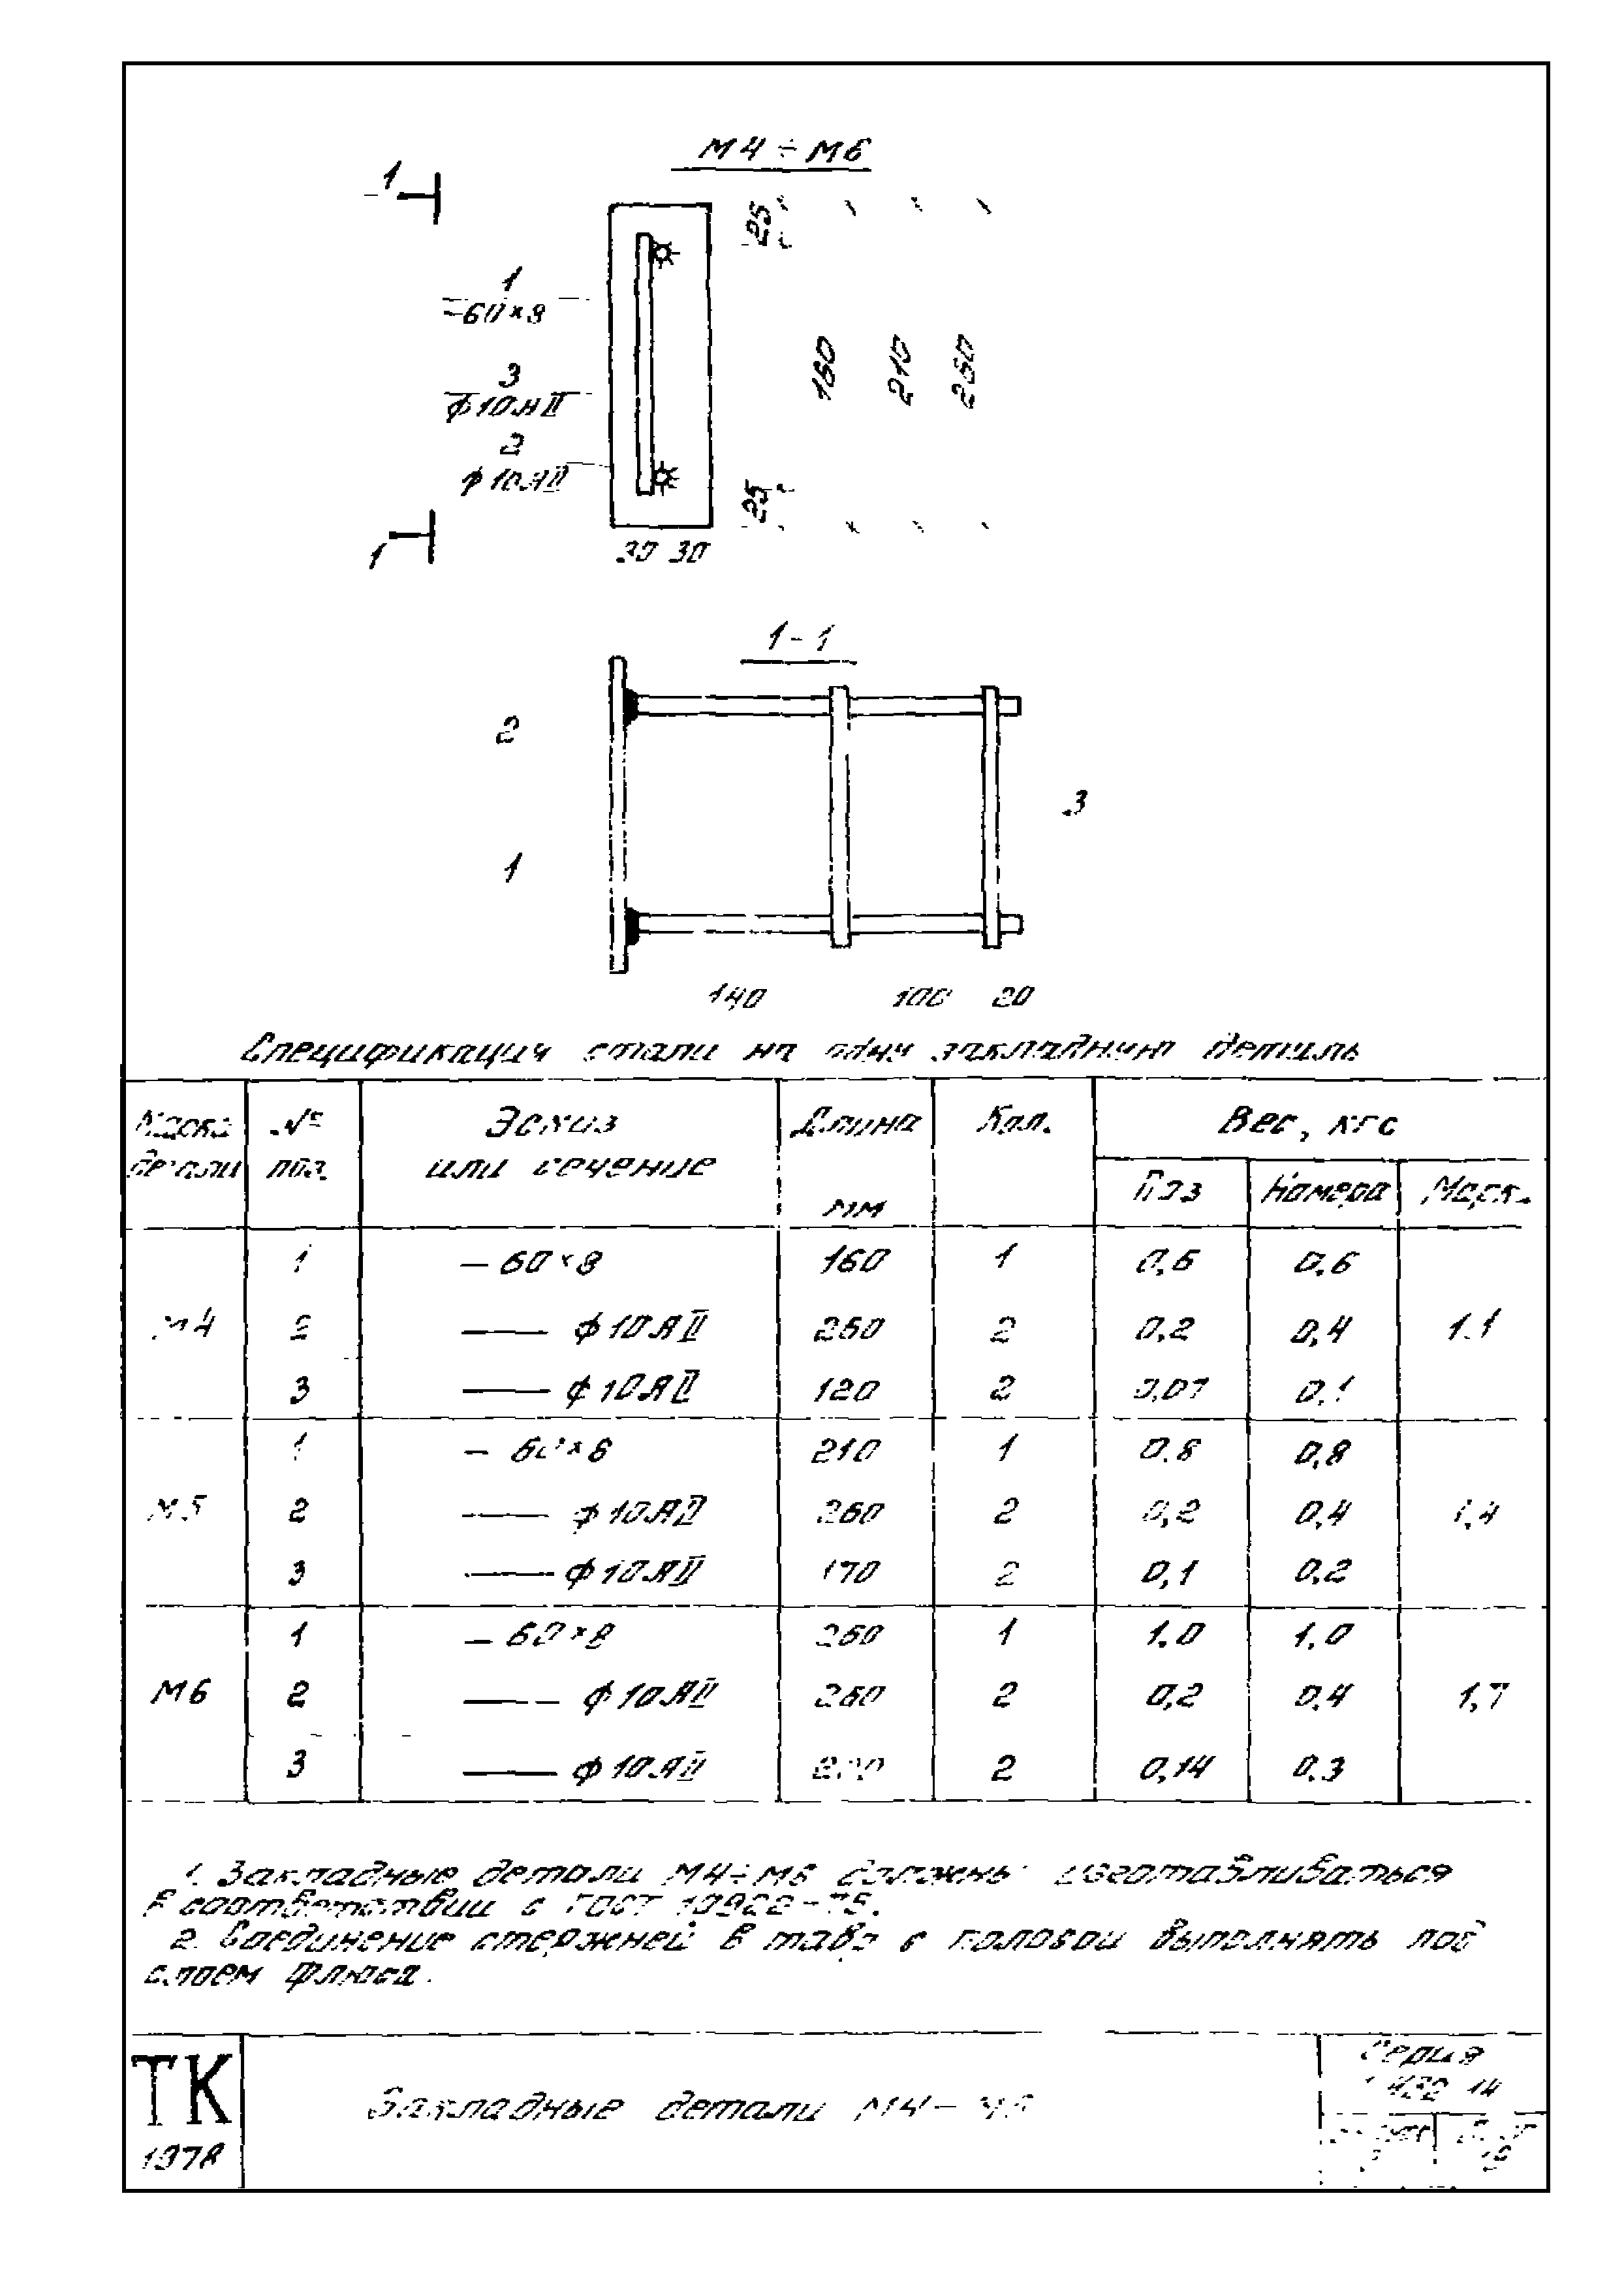 М4 ÷ М6
1
25
1
-60×8
3
ф10АII
160
210
260
2
ф10АII
25
1
30 30
1-1
2
3
1
140 100 20
Спецификация стали на одну закладную деталь
Марка детали № поз. Эскиз или сечение Длина мм Кол. Вес, кгс
Поз Номера Марк.
1 — 60×8 160 1 0,6 0,6
М4 2 —— ф10АII 260 2 0,2 0,4 1.1
3 —— ф10АII 120 2 0,07 0,1
1 — 60×8 210 1 0.8 0,8
М5 2 —— ф10АII 260 2 0,2 0,4 1,4
3 —— ф10АII 170 2 0,1 0,2
1 — 60×8 260 1 1.0 1,0
М6 2 —— ф10АII 260 2 0,2 0,4 1,7
3 —— ф10АII 2 0,14 0.3
1. Закладные детали М4÷М6 должны изготавливаться
в соответствии с ГОСТ 10922-75.
2. Соединение стержней в тавр с полосой выполнять под
слоем флюса.
ТК
1978
Закладные детали М4 - М6
Серия